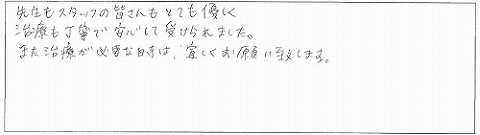 先生もスタッフの皆さんもとても優しく
治療も丁寧で安心して受けられました。
また治療が必要な時は、宜しくお願い致します。